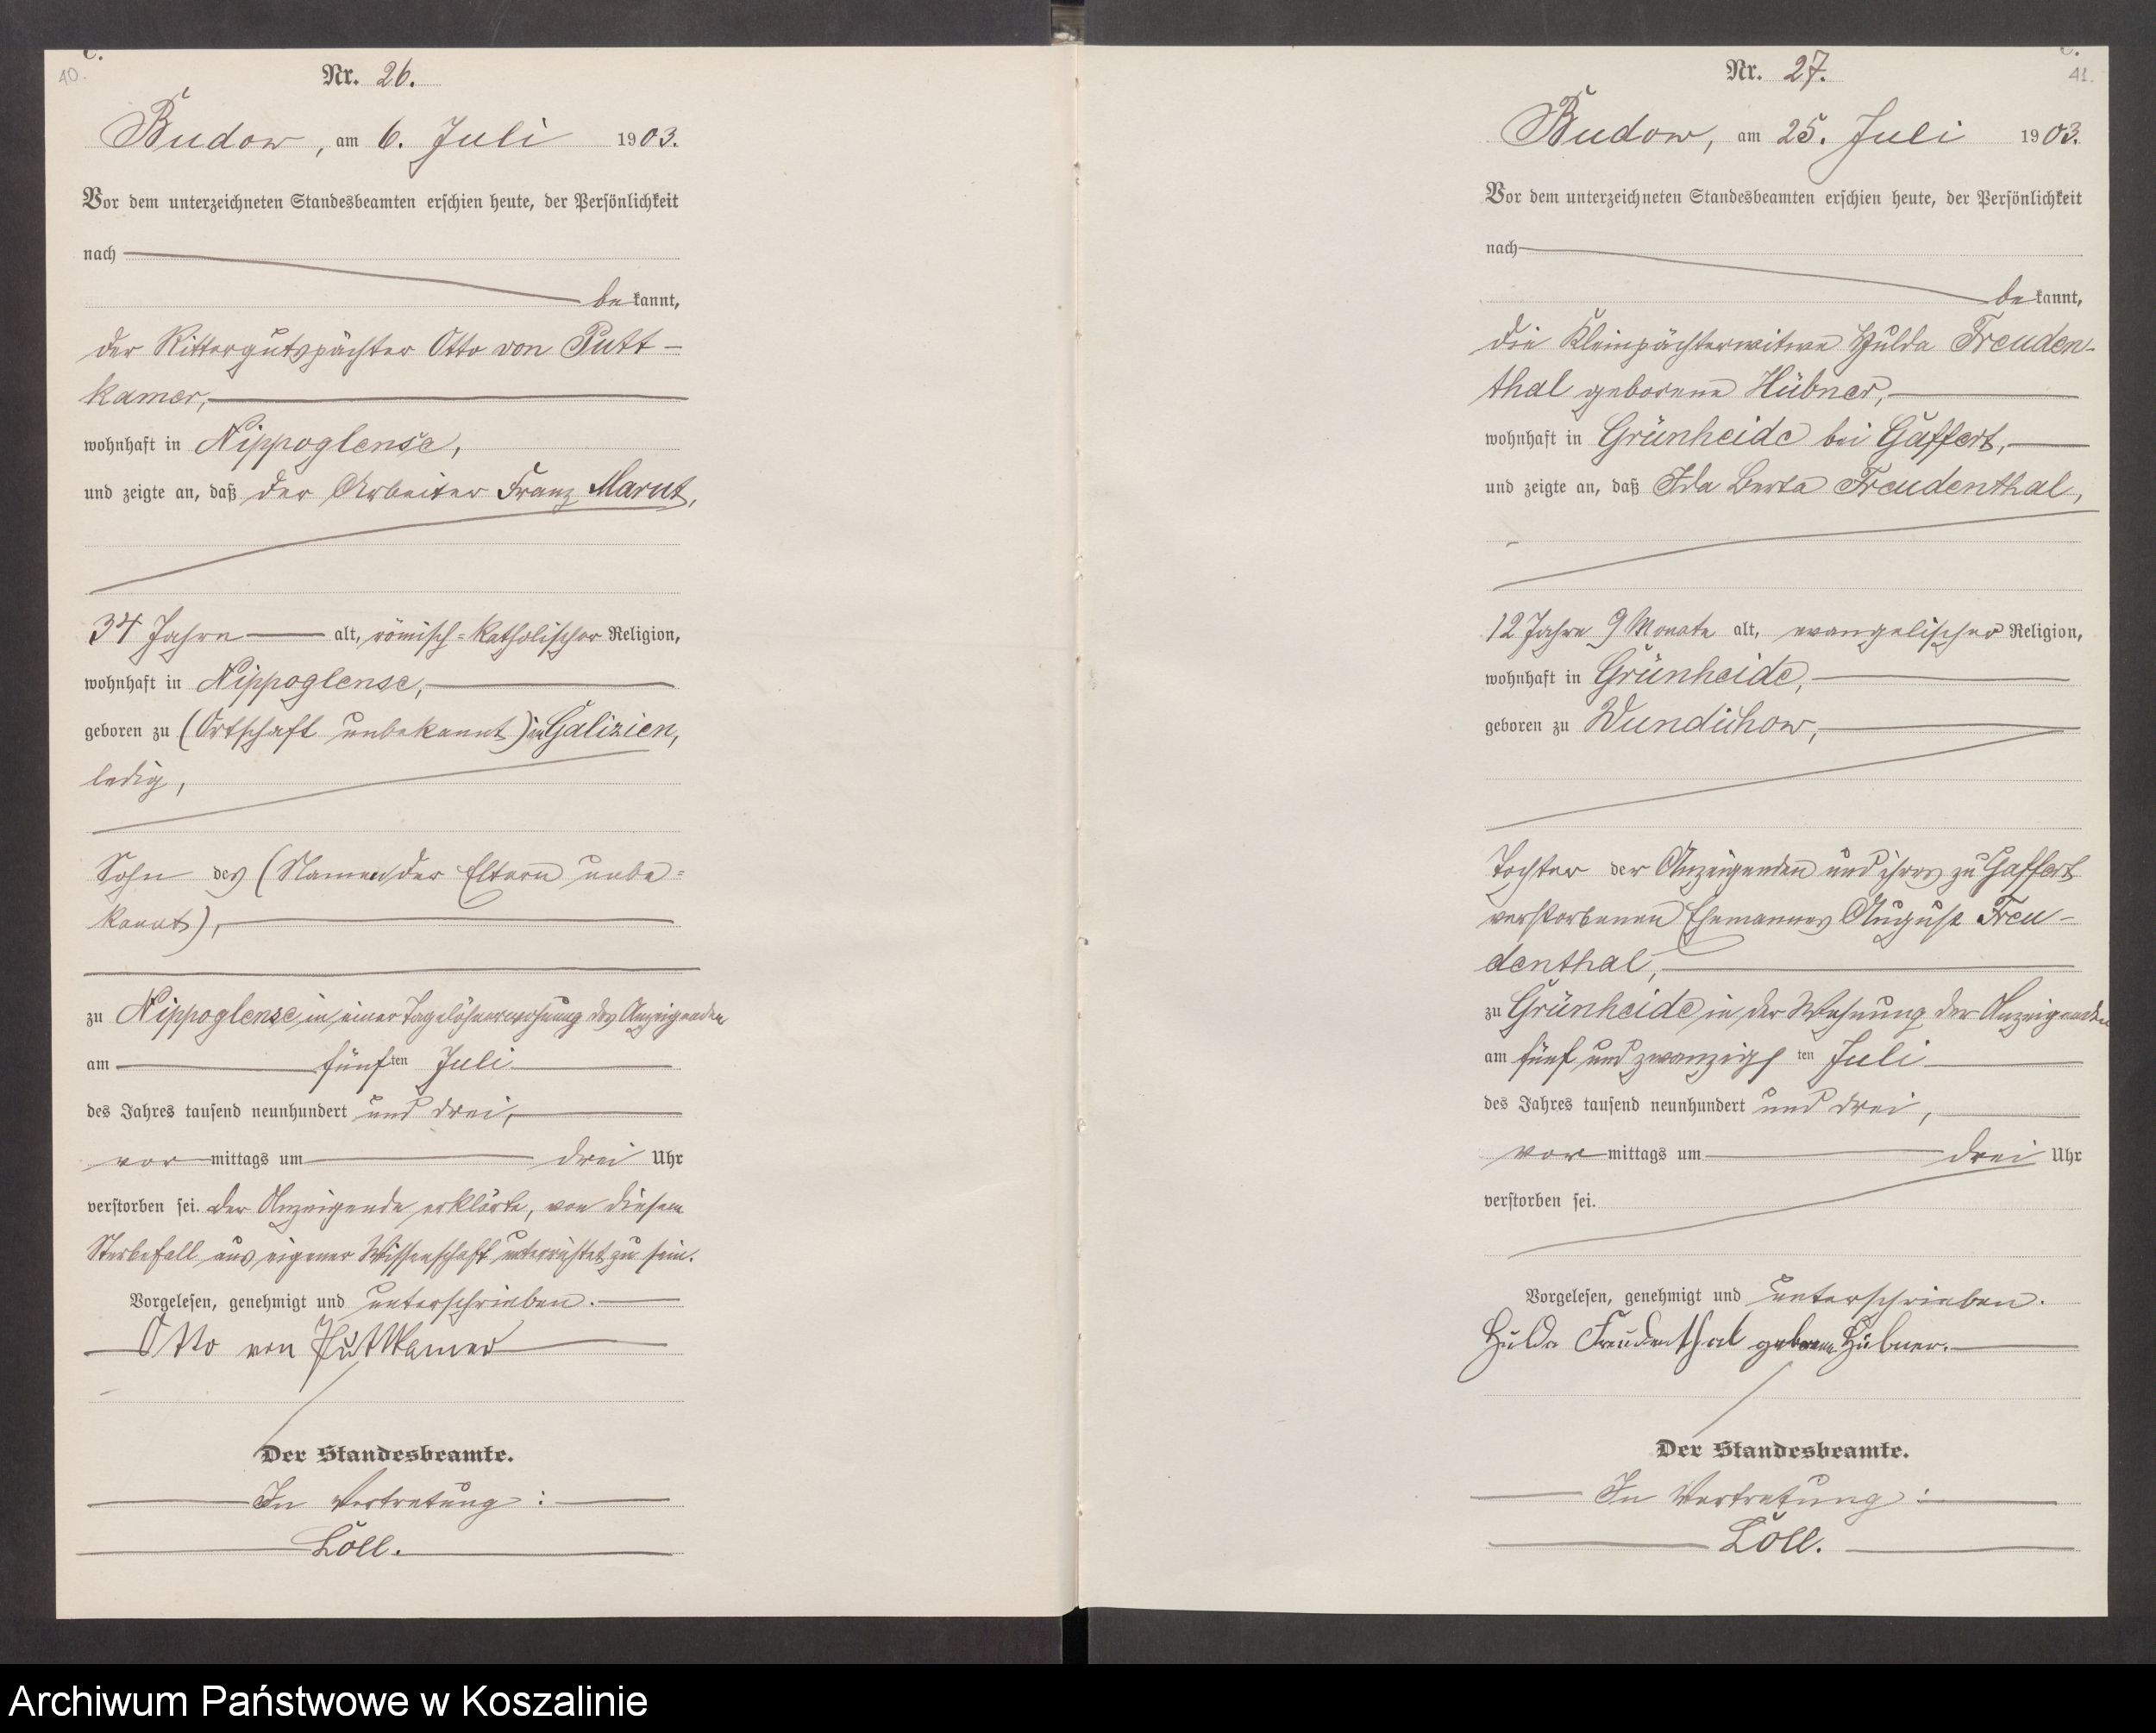 C.
40.
Nr. 26.
Budow, am 6. Juli 1903.
Vor dem unterzeichneten Standesbeamten erschien heute, der Persönlichkeit
nach
bekannt,
der Rittergutspächter Otto von Putt-
kamer,
wohnhaft in Nippoglense,
und zeigte an, daß der Arbeiter Franz Marut,
34 Jahre alt, römisch-katholischer Religion,
wohnhaft in Nippoglense,
geboren zu (Ortschaft unbekannt) in Galizien,
ledig,
Sohn des (Namen der Eltern unbe=
kannt),
zu Nippoglense, in einer Tagelöhnerwohnung des Anzeigenden
am fünften Juli
des Jahres tausend neunhundert und drei,
vormittags um drei Uhr
verstorben sei. Der Anzeigende erklärte, von diesem
Sterbefall aus eigener Wissenschaft unterrichtet zu sein.
Vorgelesen, genehmigt und unterschrieben.
Otto von Puttkamer
Der Standesbeamte.
In Vertretung:
Löll.
C.
41.
Nr. 27.
Budow, am 25. Juli 1903.
Vor dem unterzeichneten Standesbeamten erschien heute, der Persönlichkeit
nach
bekannt,
die Kleinpächterwitwe Hulda Freuden-
thal geborene Hübner,
wohnhaft in Grünheide bei Gaffert,
und zeigte an, daß Ida Berta Freudenthal,
12 Jahre 9 Monate alt, evangelischer Religion,
wohnhaft in Grünheide,
geboren zu Wundichow,
Tochter der Anzeigenden und ihres zu Gaffert
verstorbenen Ehemannes August Freu-
denthal,
zu Grünheide in der Wohnung der Anzeigenden
am fünf und zwanzigsten Juli
des Jahres tausend neunhundert und drei,
vormittags um drei Uhr
verstorben sei.
Vorgelesen, genehmigt und unterschrieben.
Hulda Freudenthal geborene Hübner.
Der Standesbeamte.
In Vertretung:
Löll.
Archiwum Państwowe w Koszalinie